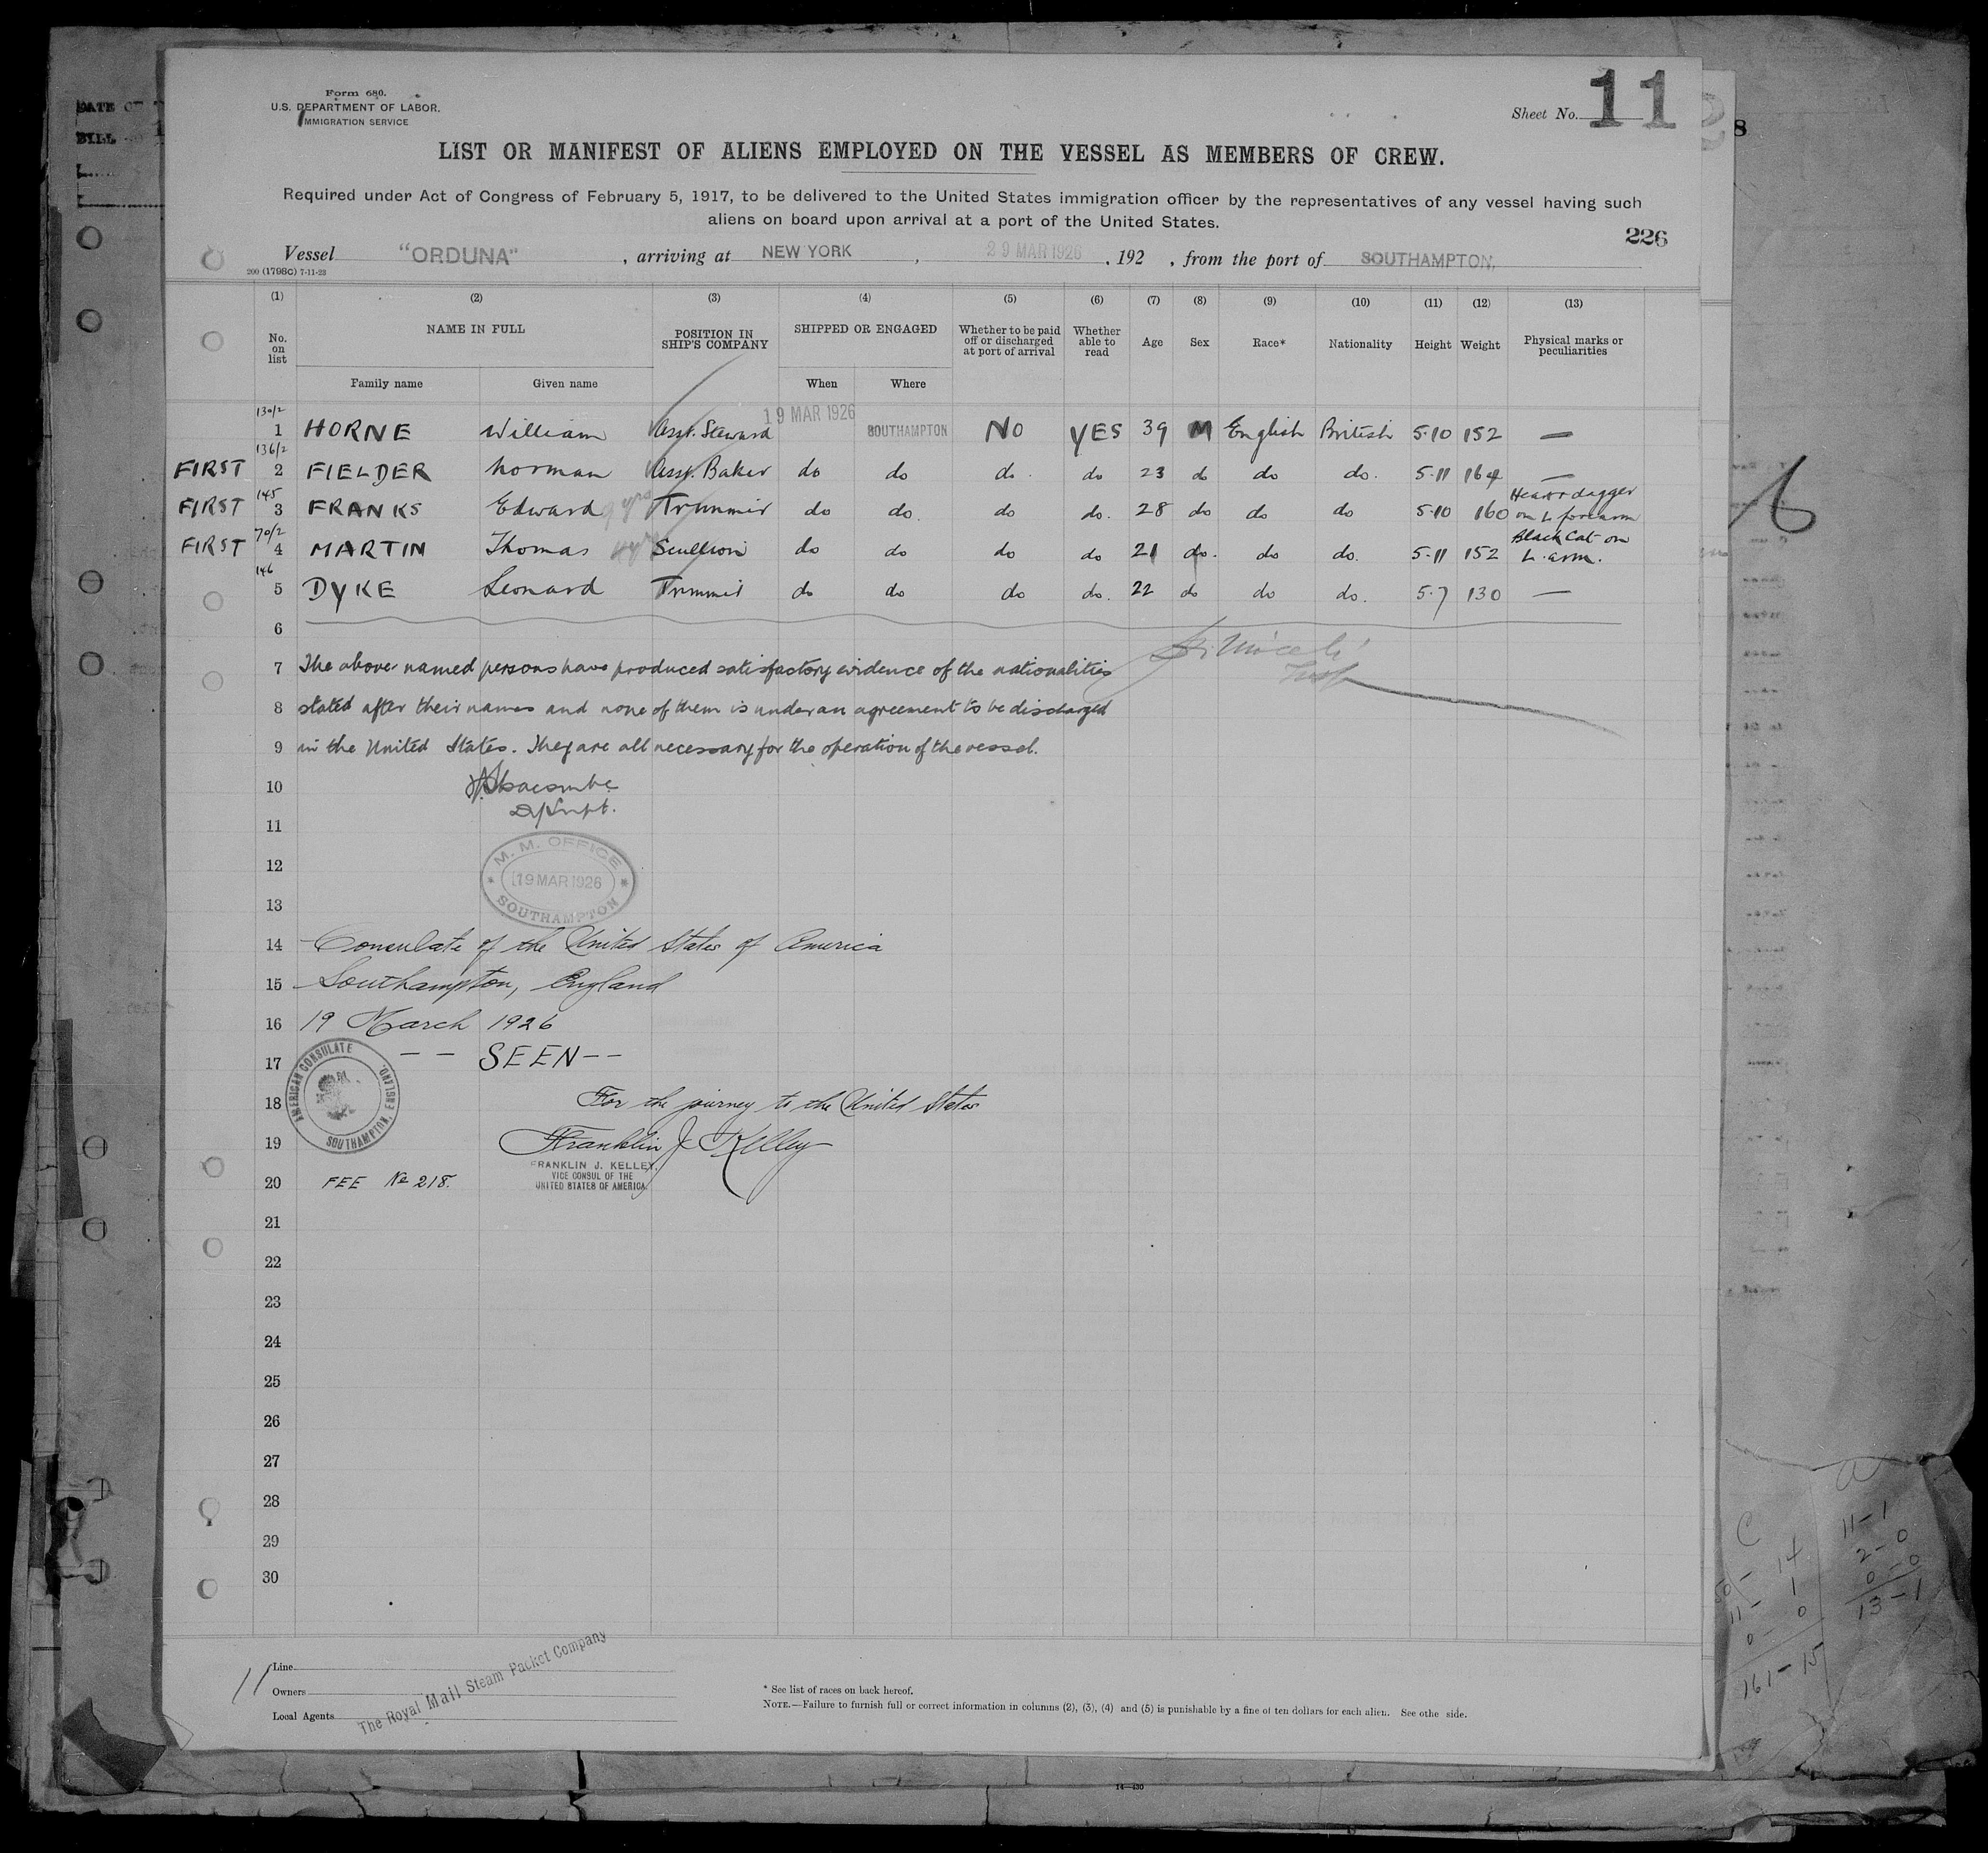 Form 680.
U.S. DEPARTMENT OF LABOR.
IMMIGRATION SERVICE
Sheet No. 11
LIST OR MANIFEST OF ALIENS EMPLOYED ON THE VESSEL AS MEMBERS OF CREW.
Required under Act of Congress of February 5, 1917, to be delivered to the United States immigration officer by the representatives of any vessel having such
aliens on board upon arrival at a port of the United States.
226
Vessel "ORDUNA", arriving at NEW YORK, 29 MAR 1926, 192 , from the port of SOUTHAMPTON,
200 (1798C) 7-11-23
(1) (2) (3) (4) (5) (6) (7) (8) (9) (10) (11) (12) (13)
No. on list NAME IN FULL POSITION IN SHIP'S COMPANY SHIPPED OR ENGAGED Whether to be paid off or discharged at port of arrival Whether able to read Age Sex Race* Nationality Height Weight Physical marks or peculiarities
Family name Given name When Where
130/2
1 HORNE William Asst. Steward 19 MAR 1926 SOUTHAMPTON NO YES 39 M English British 5·10 152 —
136/2
FIRST 2 FIELDER Norman Asst. Baker do do do do 23 do do do. 5·11 164 —
145
FIRST 3 FRANKS Edward 9 yrs Trimmer do do do do. 28 do do do 5·10 160 Heart & dagger on L forearm
70/2
FIRST 4 MARTIN Thomas Scullion do do do do 21 do. do do. 5·11 152 Black Cat on L. arm.
146
5 DYKE Leonard Trimmer do do do do. 22 do do do. 5·7 130 —
6
7 The above named persons have produced satisfactory evidence of the nationalities
8 stated after their names and none of them is under an agreement to be discharged
9 in the United States. They are all necessary for the operation of the vessel.
10
D/Supt.
11
12
M. M. OFFICE
19 MAR 1926
SOUTHAMPTON
13
14 Consulate of the United States of America
15 Southampton, England
16 19 March 1926
17 — — SEEN — —
AMERICAN CONSULATE
SOUTHAMPTON, ENGLAND.
18 For the journey to the United States
19 Franklin J Kelley
FRANKLIN J. KELLEY,
VICE CONSUL OF THE
UNITED STATES OF AMERICA
20 FEE No 218.
21
22
23
24
25
26
27
28
29
30
11
Line
Owners
Local Agents
The Royal Mail Steam Packet Company
* See list of races on back hereof.
NOTE.—Failure to furnish full or correct information in columns (2), (3), (4) and (5) is punishable by a fine of ten dollars for each alien. See othe side.
14—430
C
14
1
11-
0-0
161-15
a
11-1
2-0
0-0
13-1